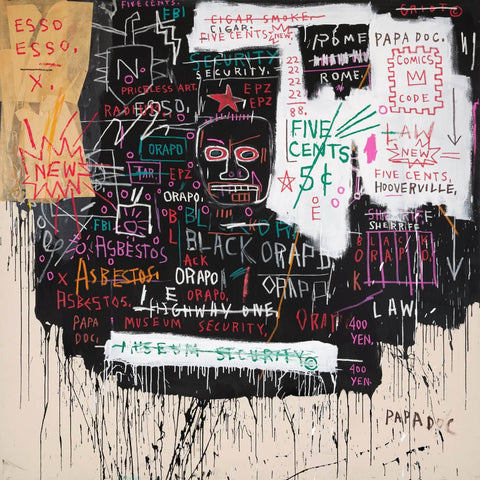 FIVE CENTS.
FBI
ESSO
ESSO.
X.
CIGAR SMOKE.
CIGAR.
FIVE CENTS.
NEW
GRIOT©
ROME
ROME.
PAPA DOC.
COMICS
CODE
SECURITY
SECURITY.
N
PRICELESS ART.
RADIUM
ESSO.
EPZ
EPZ
22
22
22
22
88.
FIVE
CENTS
5¢
LAW
NEW
FIVE CENTS.
HOOVERVILLE.
NEW
ORAPO
TAR
EPZ
ORAPO.
FBI
SHERRIFF
SHERRIFF
ASBESTOS
BLACK ORAPO
BLACK
ORAPO.
ASBESTOS.
ACK
ORAPO
ORAPO
ASBESTOS.
ORAPO.
HIGHWAY ONE
LAW.
PAPA
DOC.
MUSEUM SECURITY.
ORAP
400
YEN.
MUSEUM SECURITY©
400
YEN.
PAPA DOC